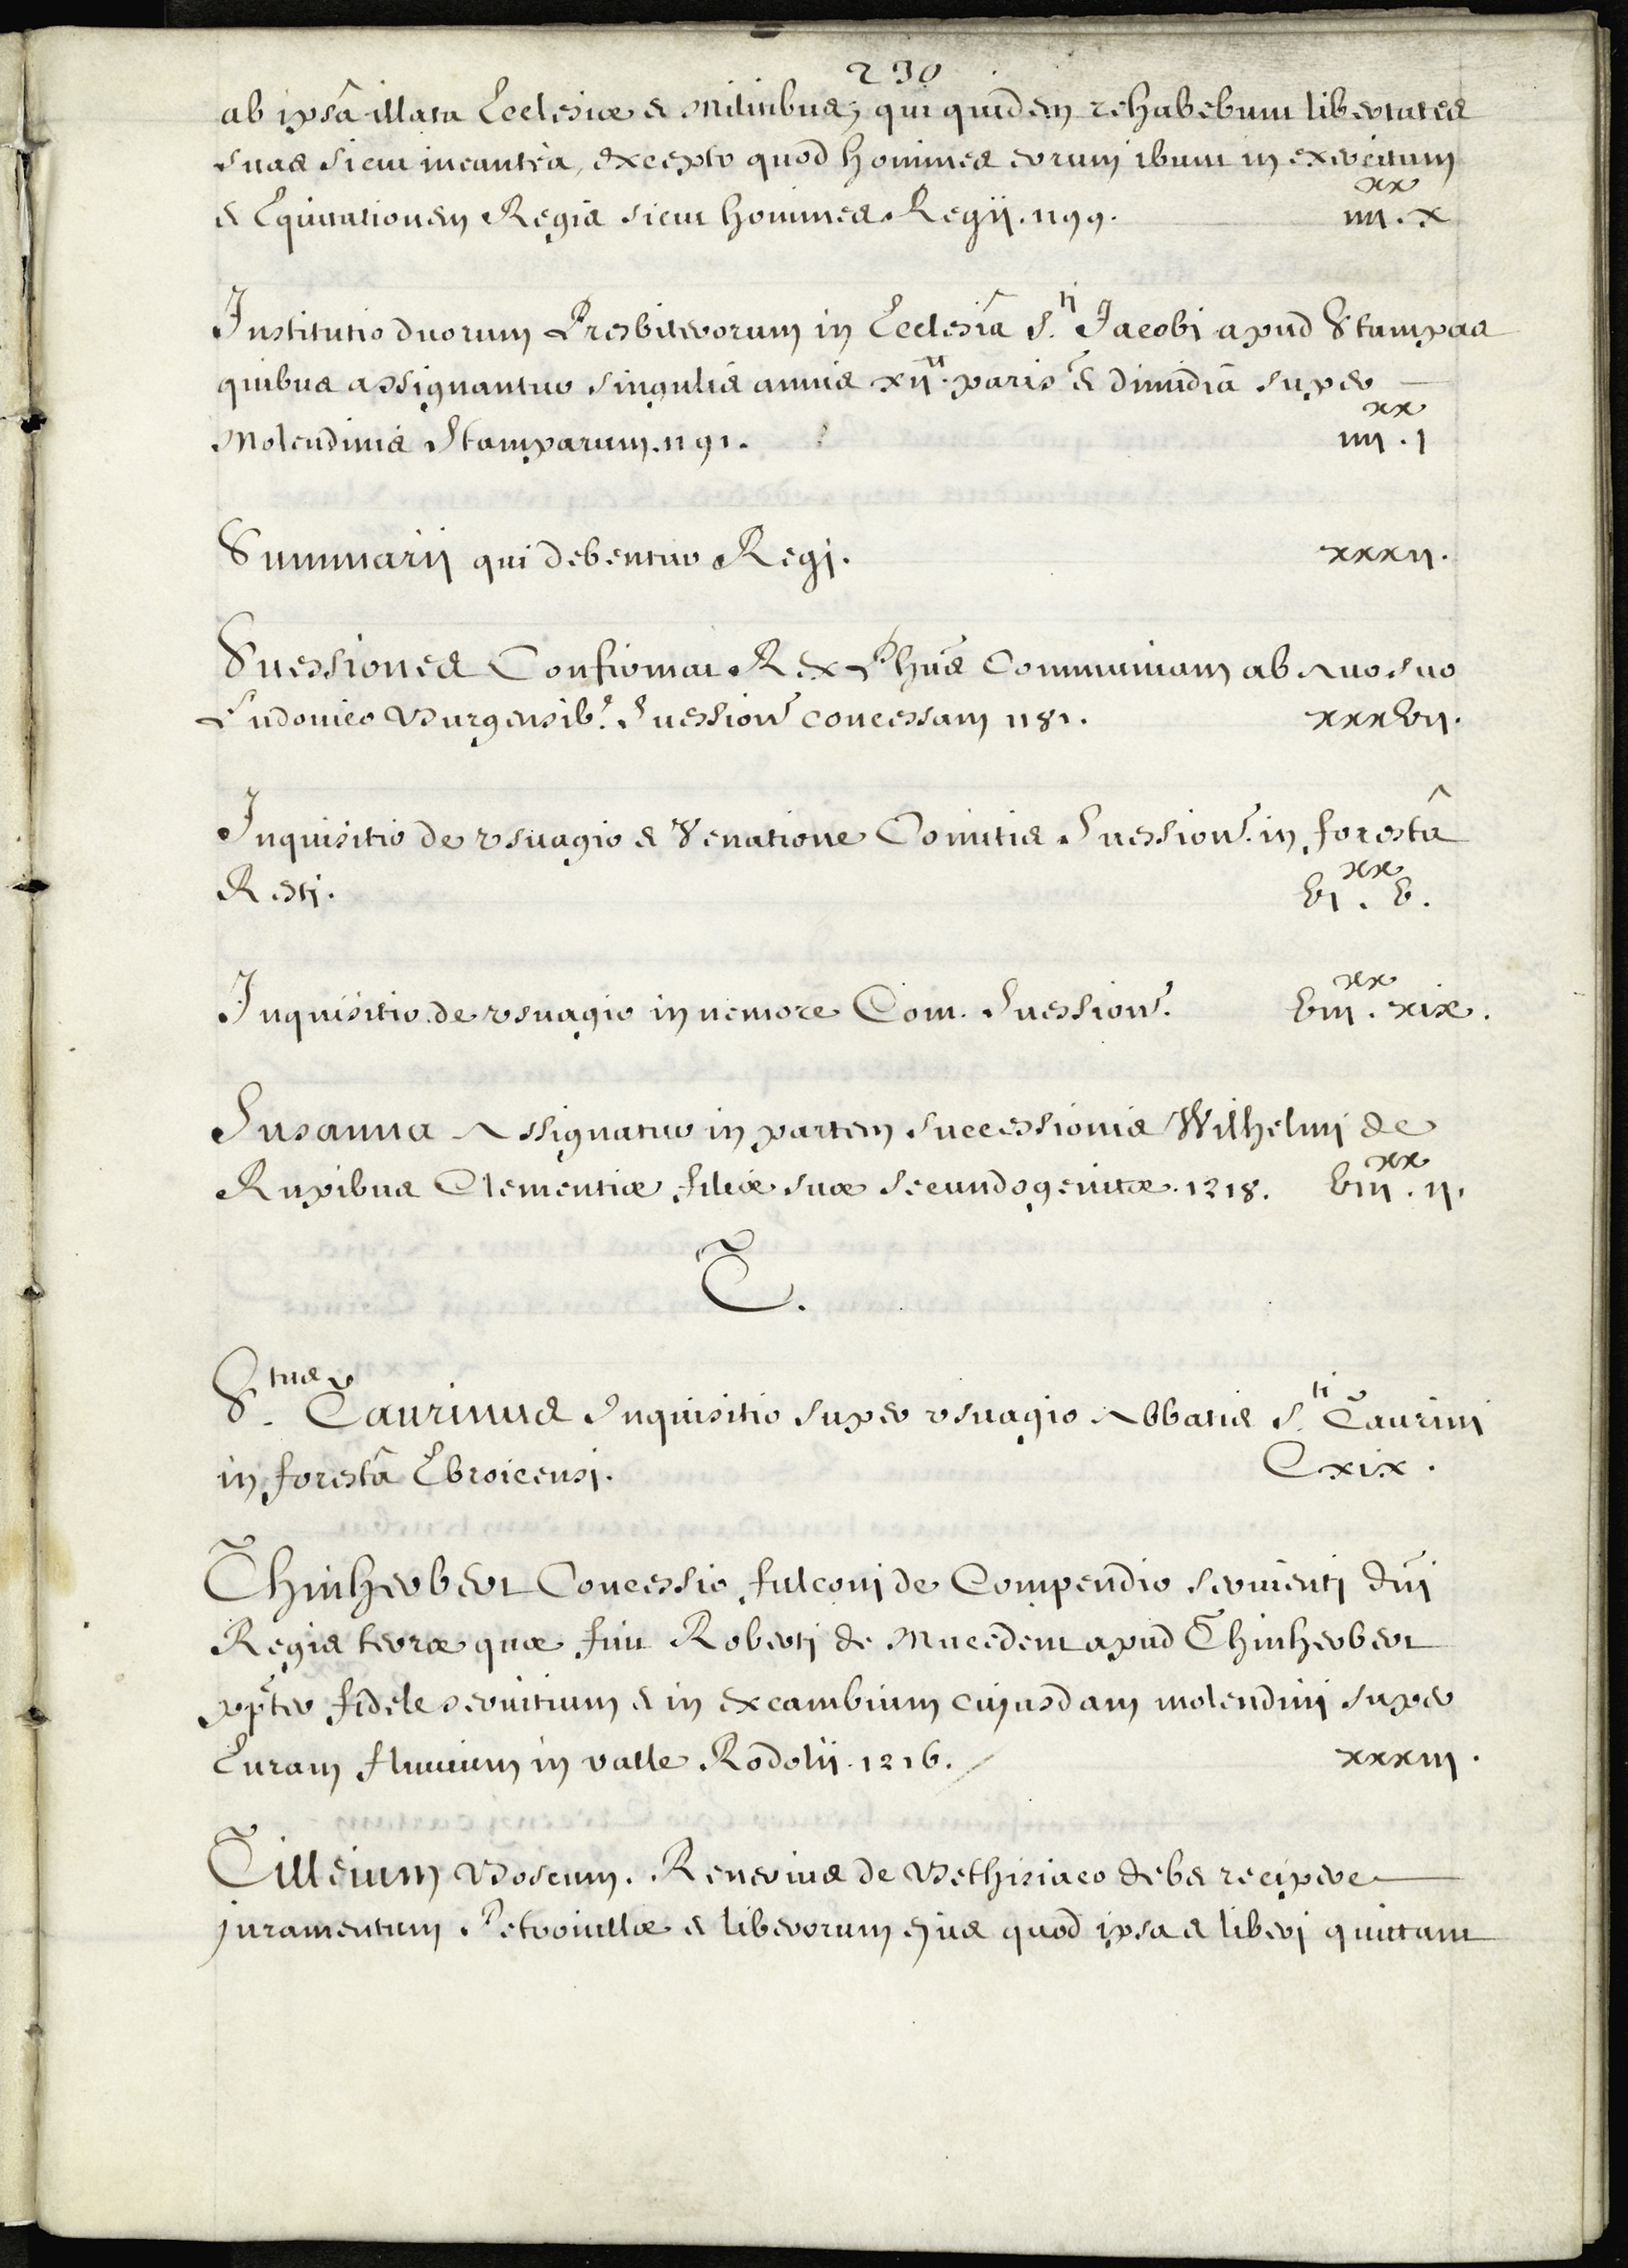 230
ab ipsâ illata Ecclesiæ & Militibus; qui quidem rehabebunt libertates
suas sicut in cautrà, excepto quod homines eorum ibunt in exercitum
& Equitationem Regis sicut homines Regii. 1199. iiii^xx. x
Institutio duorum Presbiterorum in Ecclesiâ S.^ti Jacobi apud Stampas
quibus assignantur singulis annis xii^ll. paris̃ & dimidiâ super
Molendinis Stamparum. 1191. iiii^xx. j
Summarii qui debentur Regi. xxxii.
Suessiones Confirmat Rex Phũs Communiam ab Avo suo
Ludovico Burgensib. Suession̄ concessam 1181. xxxvii.
Inquisitio de usuagio & Venatione Comitis Suession̄. in forestâ
Resti. vi^xx. v.
Inquisitio de usuagio in nemore Com. Suession̄. viii^xx. xix.
Susanna Assignatur in partem successionis Wilhelmi de
Rupibus Clementiæ filiæ suæ secundogenitæ. 1218. viii^xx. ii.
T.
S.^tus Taurinus Inquisitio super usuagio Abbatis S.^ti Taurini
in forestâ Ebroicensi. Cxix.
Thinherbert Concessio fulconi de Compendio servienti dñi
Regis terræ quæ fuit Roberti de Mucedent apud Thinherbert
pp̃ter fidele servitium & in excambium cujusdam molendini super
Euram fluvium in valle Rodolii. 1216. xxxiii.
Tilleium Boscum. Renerius de Bethisiaco debet recipere
juramentum Petronillæ & liberorum ejus quod ipsa & liberi quittant